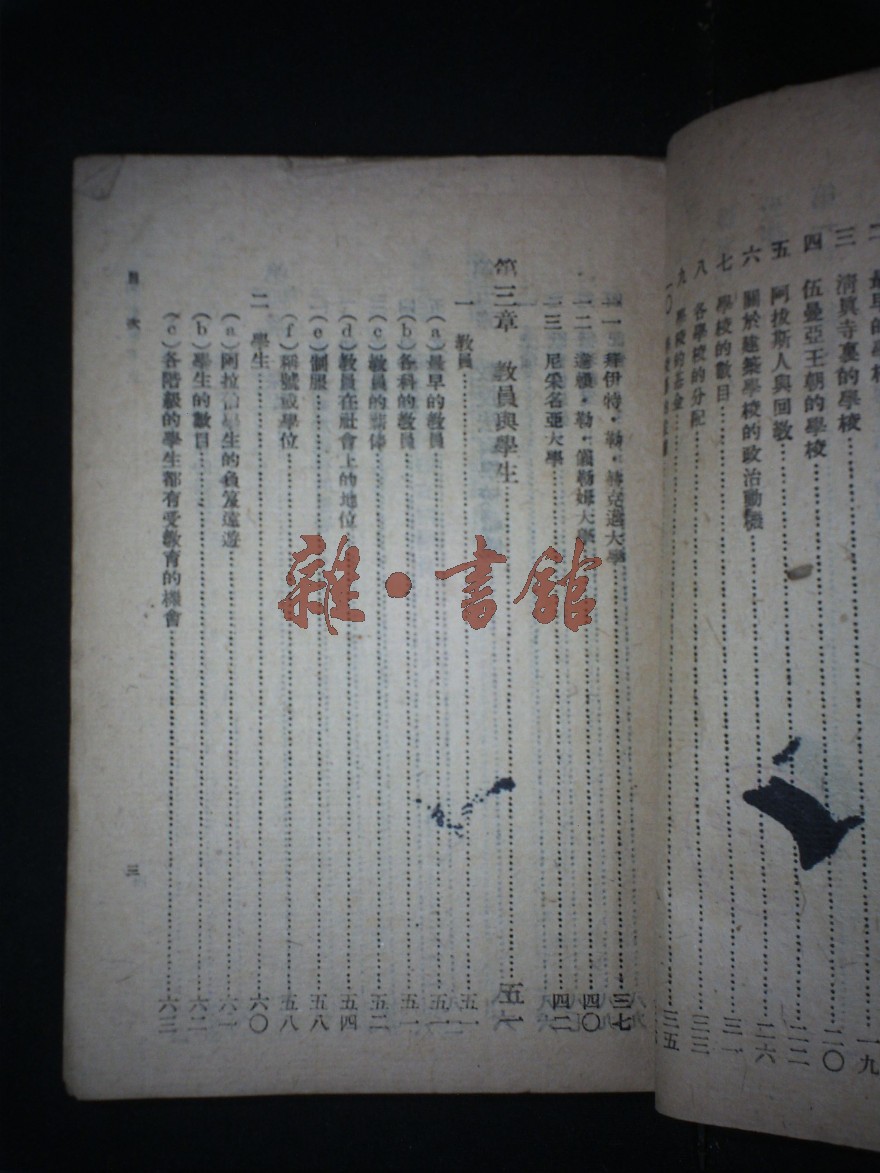 三 清眞寺裏的學校 二〇
四 伍曼亞王朝的學校 二二
五 阿拔斯人與回教
六 關於建築學校的政治動機 二六
七 學校的數目 三一
八 各學校的分配 三三
九 學校的基金 三五
一一 拜伊特·勒·赫克邁大學 三七
一二 大學 四〇
一三 尼采名亞大學 四二
第三章 教員與學生 五一
一 教員 五一
(a)最早的教員 五一
(b)各科的教員 五一
(c)教員的薪俸 五二
(d)教員在社會上的地位 五四
(e)制服 五八
(f)稱號或學位 五八
二 學生 六〇
(a)阿拉伯學生的負笈遠遊 六一
(b)學生的數目 六二
(c)各階級的學生都有受教育的機會 六三
目次
三
雜·書館